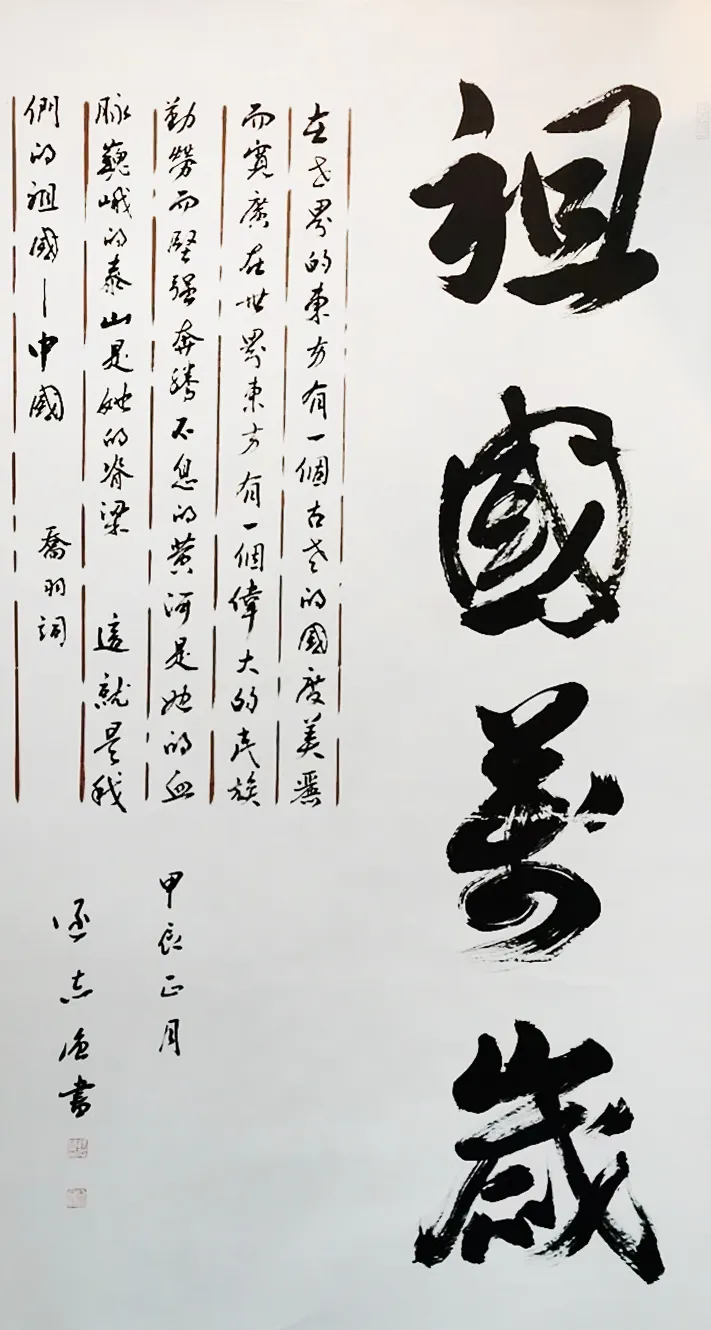 祖國萬歲
在世界的東方有一個古老的國度美麗
而寬廣在世界東方有一個偉大的民族
勤勞而堅强奔騰不息的黄河是她的血
脉巍峨的泰山是她的脊梁 這就是我
們的祖國—中國 喬羽詞
甲辰正月
志強書